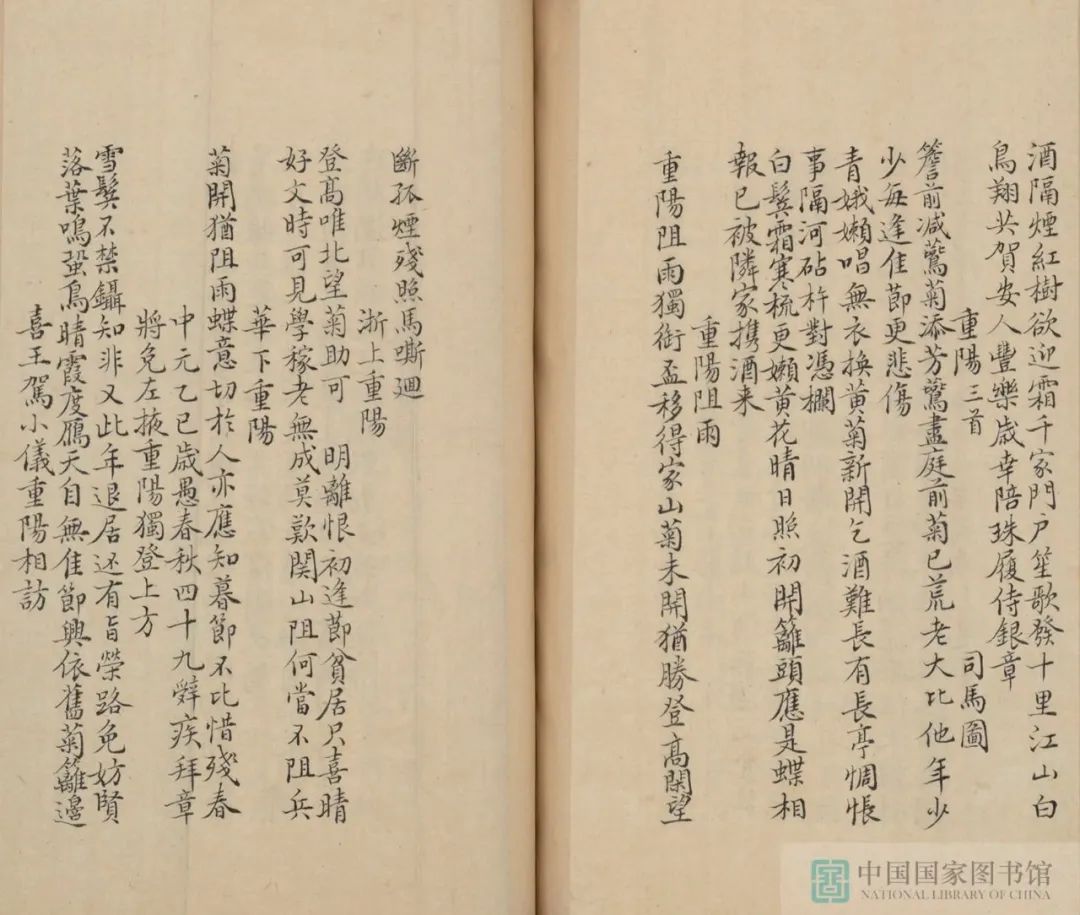 酒隔煙紅樹欲迎霜千家門户笙歌發十里江山白
鳥翔共賀安人豐樂歲幸陪珠履侍銀章
重陽三首 司馬圖
簷前減鷰菊添芳鷰盡庭前菊已荒老大比他年少
少每逢佳節更悲傷
青娥嬾唱無衣換黃菊新開乞酒難長有長亭惆悵
事隔河砧杵對憑欄
白鬂霜寒梳更嬾黃花晴日照初開籬頭應是蝶相
報已被隣家携酒来
重陽阻雨
重陽阻雨獨銜盃移得家山菊未開猶勝登高閑望
斷孤煙殘照馬嘶廻
浙上重陽
登高唯北望菊助可 明離恨初逢節貧居只喜晴
好文時可見學稼老無成莫歎関山阻何當不阻兵
華下重陽
菊開猶阻雨蝶意切於人亦應知暮節不比惜殘春
中元乙巳歲愚春秋四十九辤疾拜章
將免左掖重陽獨登上方
雪鬂不禁鑷知非又此年退居还有旨榮路免妨賢
落葉鳴蛩鳥晴霞度鴈天自無佳節興依舊菊籬邊
喜王駕小儀重陽相訪
中国国家图书馆
NATIONAL LIBRARY OF CHINA